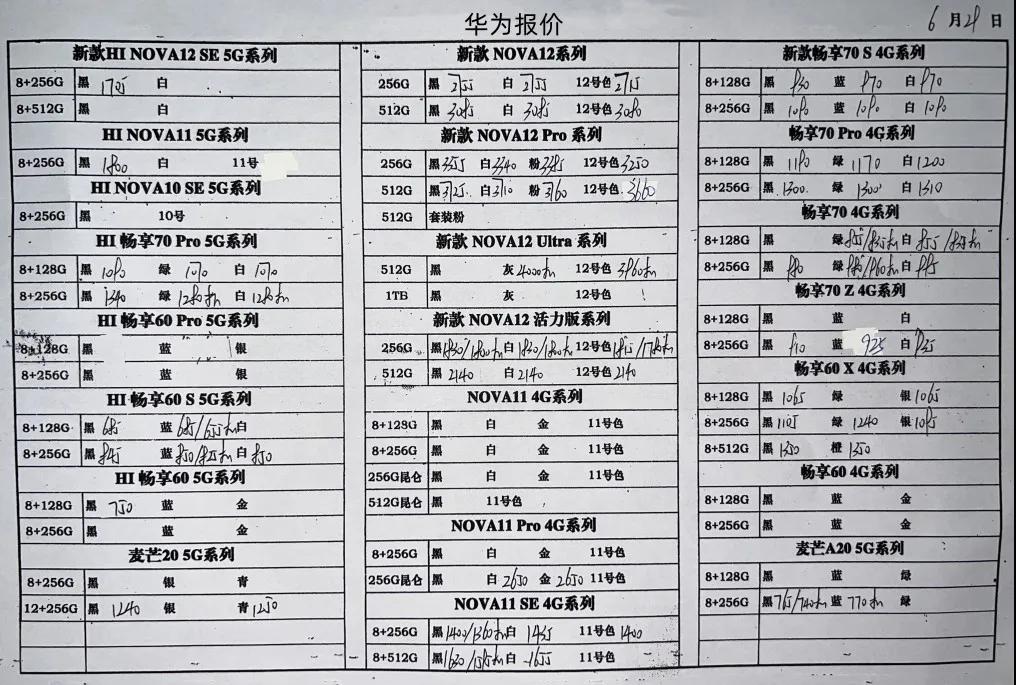 华为报价
6月 日
新款HI NOVA12 SE 5G系列
8+256G 黑 1705 白
8+512G 黑 白
HI NOVA11 5G系列
8+256G 黑 1800 白 11号
HI NOVA10 SE 5G系列
8+256G 黑 10号
HI 畅享70 Pro 5G系列
8+128G 黑 1080 绿 1070 白 1070
8+256G 黑 1340 绿 白
HI 畅享60 Pro 5G系列
8+128G 黑 蓝 银
8+256G 黑 蓝 银
HI 畅享60 S 5G系列
8+128G 黑 685 蓝 白
8+256G 黑 845 蓝 白 850
HI 畅享60 5G系列
8+128G 黑 750 蓝 金
8+256G 黑 蓝 金
麦芒20 5G系列
8+256G 黑 银 青
12+256G 黑 1240 银 青 1250
新款 NOVA12系列
256G 黑 白 12号色
512G 黑 3085 白 3085 12号色 3080
新款 NOVA12 Pro 系列
256G 黑 白 3340 粉 3385 12号色 3250
512G 黑 白 3710 粉 3760 12号色 3660
512G 套装粉
新款 NOVA12 Ultra 系列
512G 黑 灰 4000 12号色 3960
1TB 黑 灰 12号色
新款 NOVA12 活力版系列
256G 黑 1830/1800 白 1830/1800 12号色
512G 黑 2140 白 2140 12号色 2140
NOVA11 4G系列
8+128G 黑 白 金 11号色
8+256G 黑 白 金 11号色
256G昆仑 黑 白 金 11号色
512G昆仑 黑 11号色
NOVA11 Pro 4G系列
8+256G 黑 白 金 11号色
256G昆仑 黑 白 2650 金 2650 11号色
NOVA11 SE 4G系列
8+256G 黑 1400/1360 白 1435 11号色 1400
8+512G 黑 白 1655 11号色
新款畅享70 S 4G系列
8+128G 黑 830 蓝 870 白 870
8+256G 黑 1080 蓝 1080 白 1080
畅享70 Pro 4G系列
8+128G 黑 1180 绿 1170 白 1200
8+256G 黑 1300 绿 1300 白 1310
畅享70 4G系列
8+128G 黑 绿 白
8+256G 黑 880 绿 880/860 白 885
畅享70 Z 4G系列
8+128G 黑 蓝 白
8+256G 黑 910 蓝 925 白
畅享60 X 4G系列
8+128G 黑 1065 绿 银 1065
8+256G 黑 1105 绿 1240 银 1085
8+512G 黑 1350 橙 1350
畅享60 4G系列
8+128G 黑 蓝 金
8+256G 黑 蓝 金
麦芒A20 5G系列
8+128G 黑 蓝 绿
8+256G 黑 765/740 蓝 770 绿